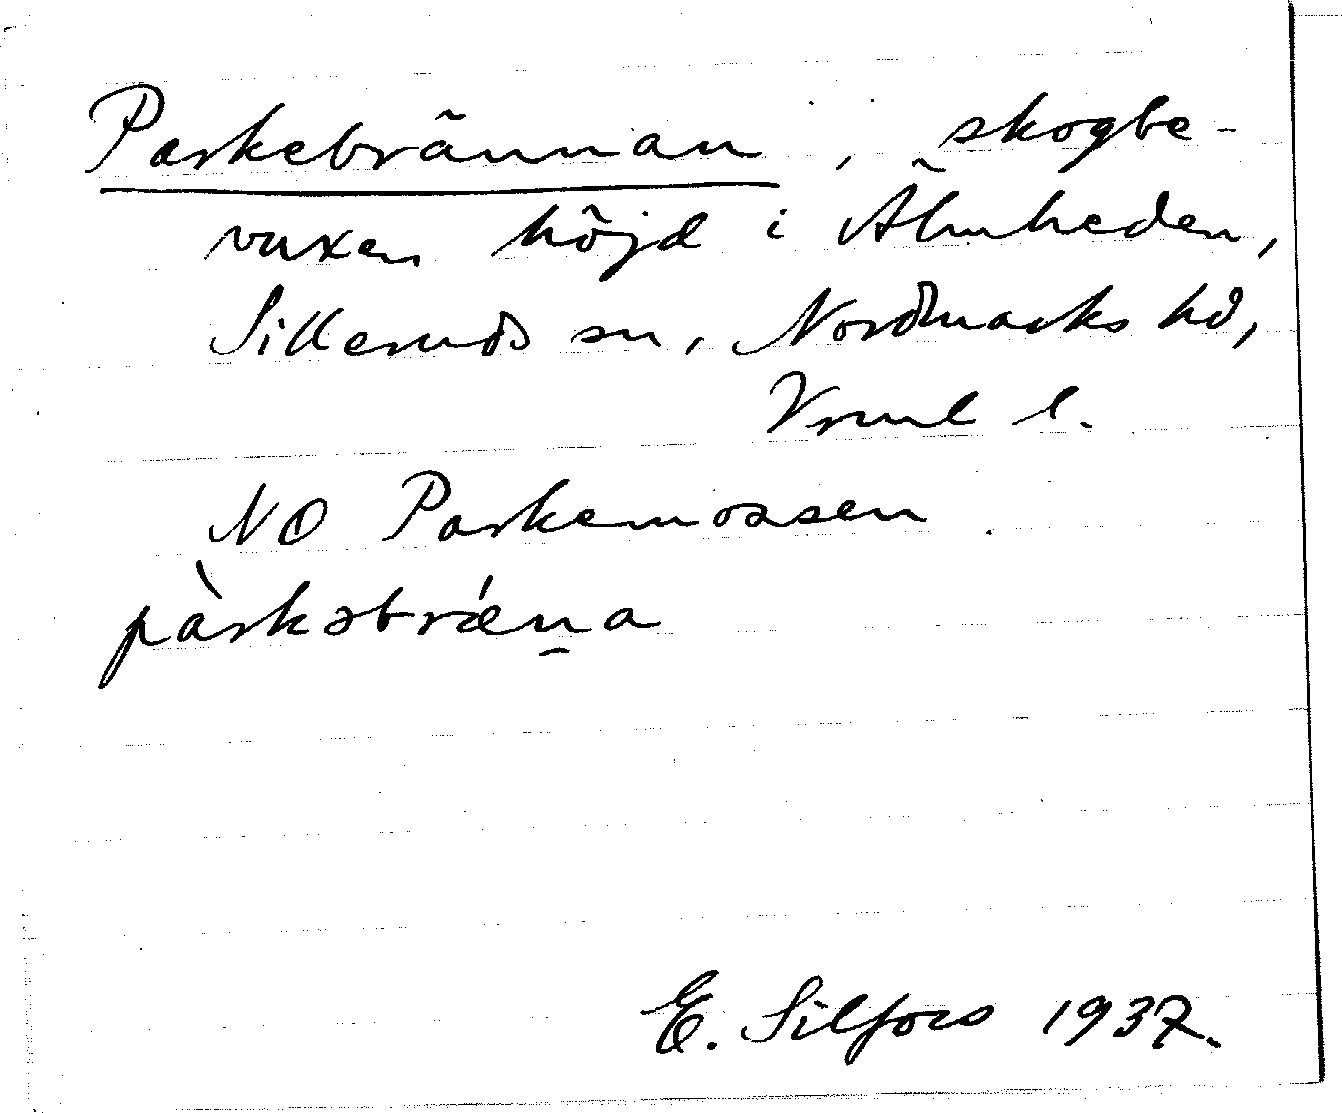 Parkebrännan, skogbe-
vuxen höjd i Älmheden,
Silleruds sn, Nordmarks hd,
Vrml l.
NO Parkemossen.
pàrkəbrǽn̲a
E. Silfors 1937.